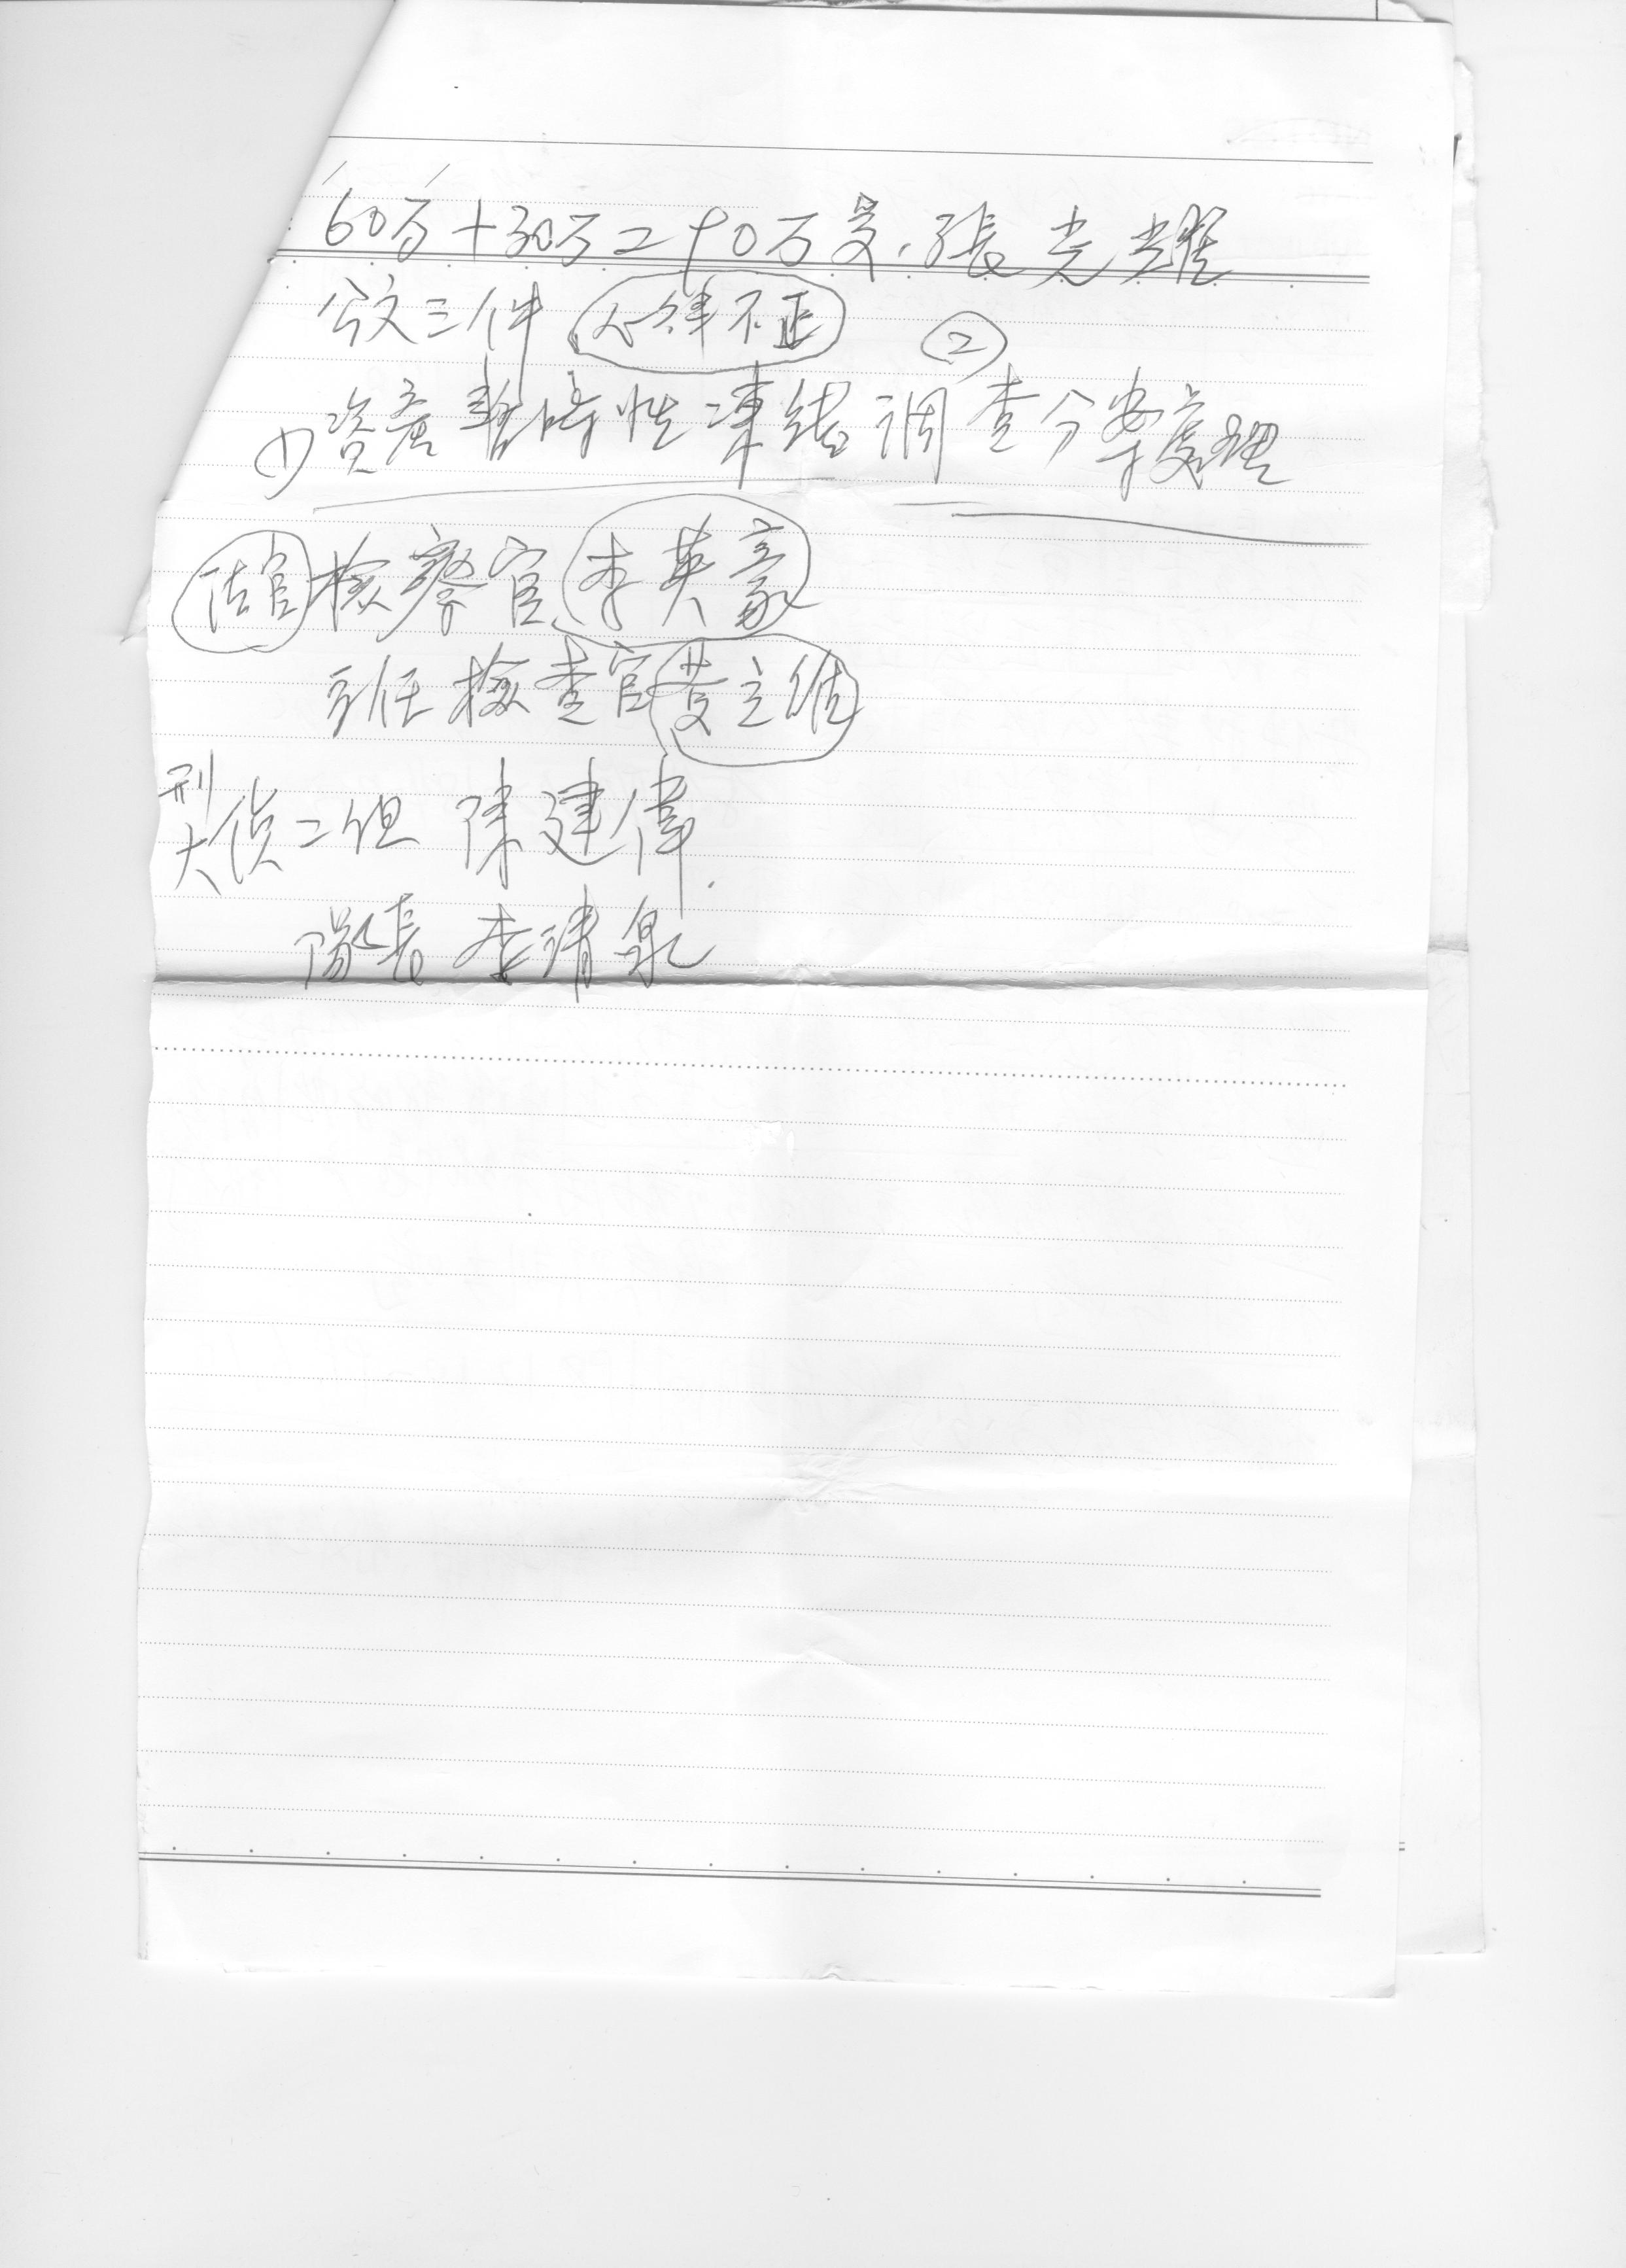 60万+30万=90万受.張光耀
公文三件 公律不正
② 
(1)資產暫時性凍結調查分案處理
法官 檢察官 李英豪
主任檢查官 黃立維
刑大偵二組 陳建偉.
隊長 李靖泉